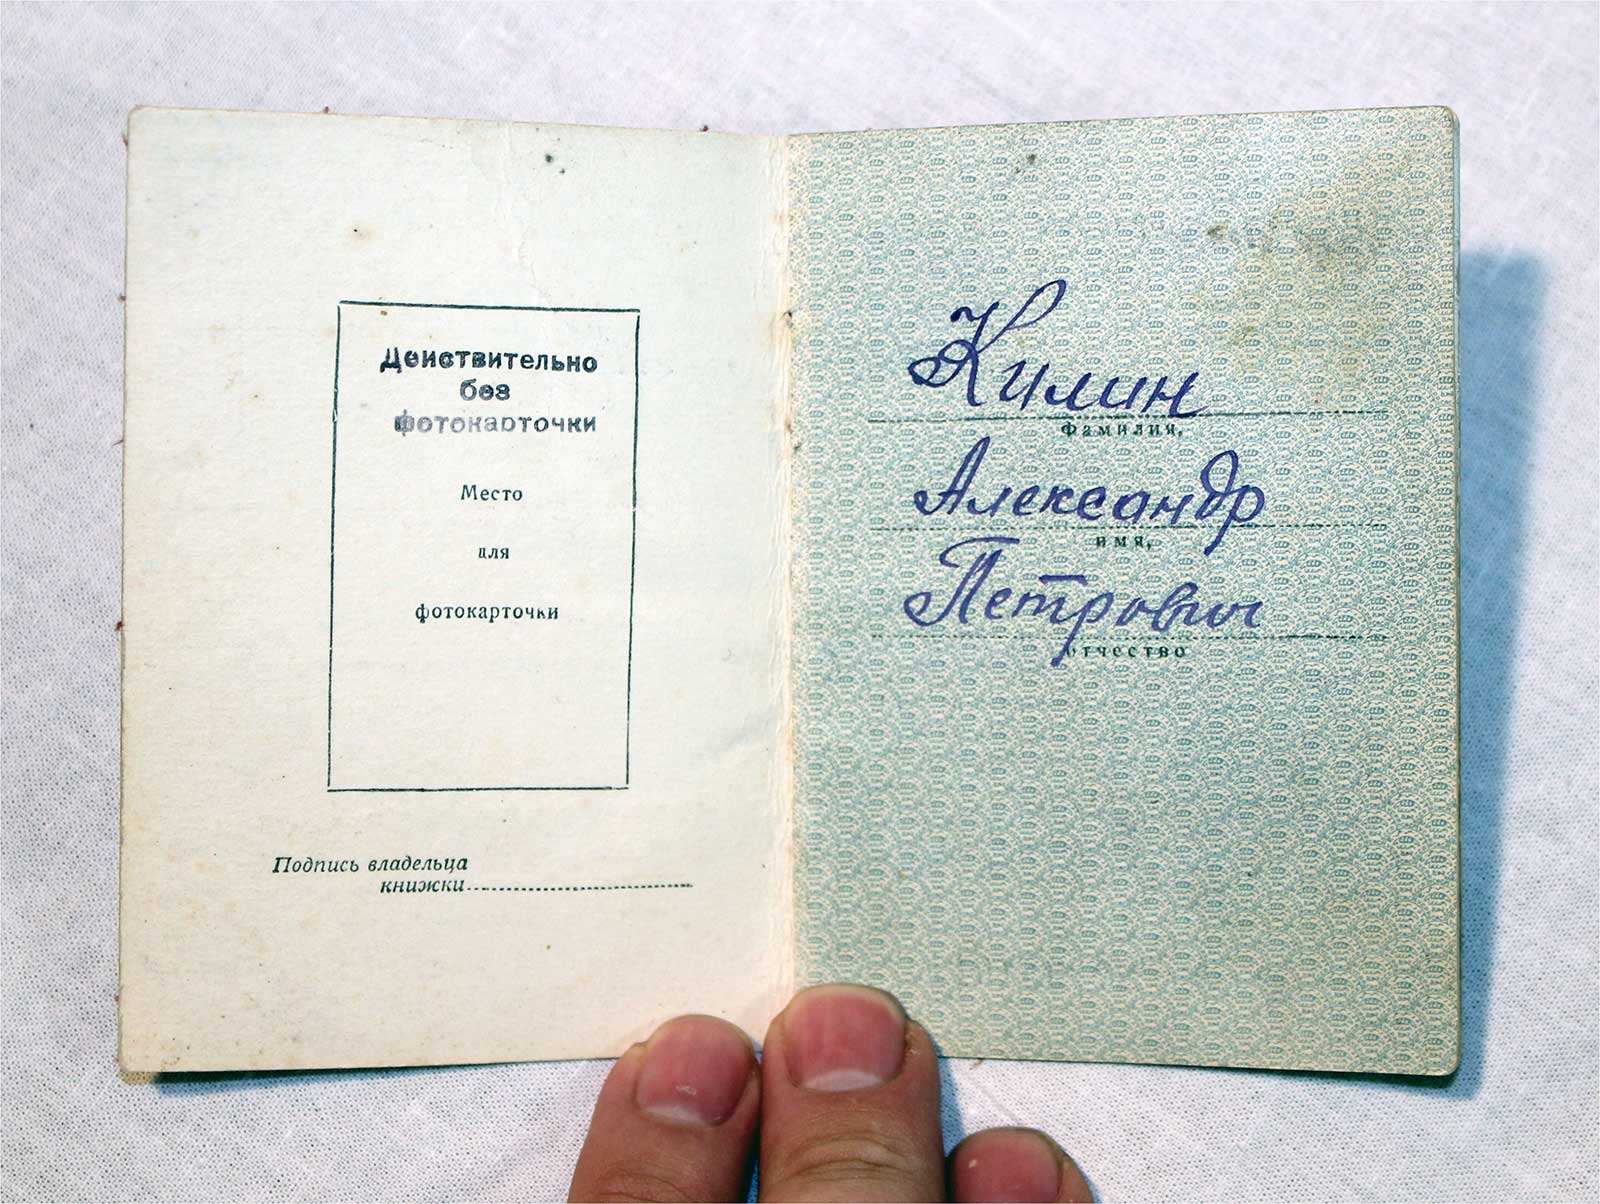 Действительно
без
фотокарточки
Место
для
фотокарточки
Подпись владельца
книжки
Килин
Фамилия,
Александр
имя,
Петрович
отчество